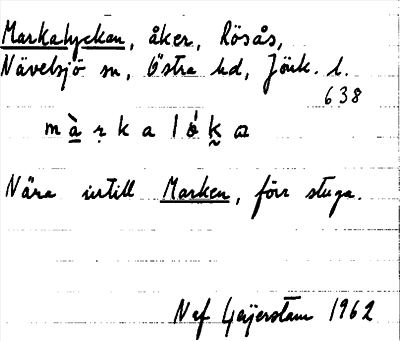 Markalyckan, åker, Rösås,
Nävelsjö sn, Östra hd, Jönk. l.
638
Nära intill Marken, förr stuga.
Naf Geijerstam 1962